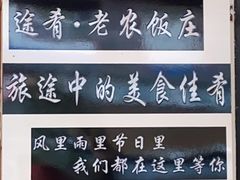 途肴·老农饭庄
旅途中的美食佳肴
风里雨里节日里
我们都在这里等你